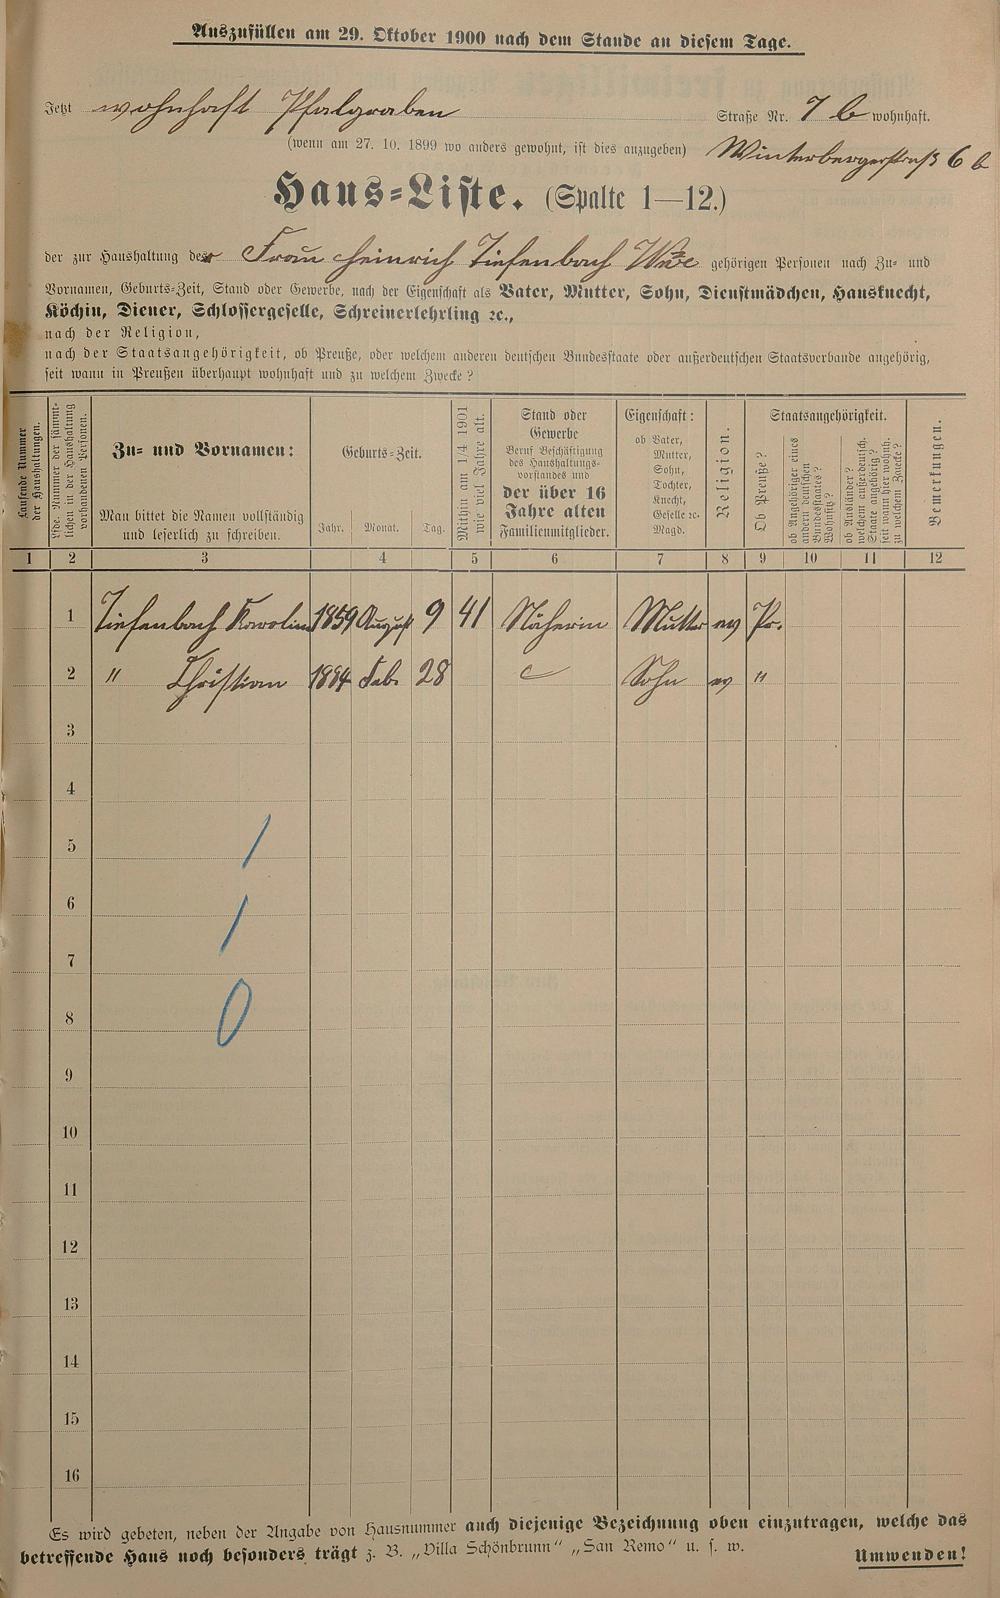 Auszufüllen am 29. Oktober 1900 nach dem Stande an diesem Tage.
Jetzt wohnhaft Pfalgraben Straße Nr. 7 b wohnhaft.
(wenn am 27. 10. 1899 wo anders gewohnt, ist dies anzugeben) Winterbergerstraß 6 b
Haus=Liste. (Spalte 1—12.)
der zur Haushaltung der Frau Heinrich Tiefenbach Wwe gehörigen Personen nach Zu= und
Vornamen, Geburts=Zeit, Stand oder Gewerbe, nach der Eigenschaft als Vater, Mutter, Sohn, Dienstmädchen, Hausknecht,
Köchin, Diener, Schlossergeselle, Schreinerlehrling ꝛc.,
nach der Religion,
nach der Staatsangehörigkeit, ob Preuße, oder welchem anderen deutschen Bundesstaate oder außerdeutschen Staatsverbande angehörig,
seit wann in Preußen überhaupt wohnhaft und zu welchem Zwecke?
Laufende Nummer
der Haushaltungen.
Lfde. Nummer der sämmt=
lichen in der Haushaltung
vorhandenen Personen.
Zu= und Vornamen:
Man bittet die Namen vollständig
und leserlich zu schreiben.
Geburts=Zeit.
Jahr. Monat. Tag.
Mithin am 1/4 1901
wie viel Jahre alt.
Stand oder
Gewerbe
Beruf Beschäftigung
des Haushaltungs-
vorstandes und
der über 16
Jahre alten
Familienmitglieder.
Eigenschaft:
ob Vater,
Mutter,
Sohn,
Tochter,
Knecht,
Geselle ꝛc.
Magd.
Religion.
Staatsangehörigkeit.
Ob Preuße?
ob Angehöriger eines
andern deutschen
Bundesstaates?
Wohnsitz?
ob Ausländer?
welchem außerdeutsch.
Staate angehörig?
seit wann hier wohnh.
zu welchem Zwecke?
Bemerkungen.
1 2 3 4 5 6 7 8 9 10 11 12
1 Tiefenbach Karolin 1859 August 9 41 Näherin Mutter ev Pr.
2 " Christian 1884 Feb. 28 Sohn ev "
3
4
5 /
6 /
7
8 0
9
10
11
12
13
14
15
16
Es wird gebeten, neben der Angabe von Hausnummer auch diejenige Bezeichnung oben einzutragen, welche das
betreffende Haus noch besonders trägt z. B. „Villa Schönbrunn“ „San Remo“ u. s. w. Umwenden!